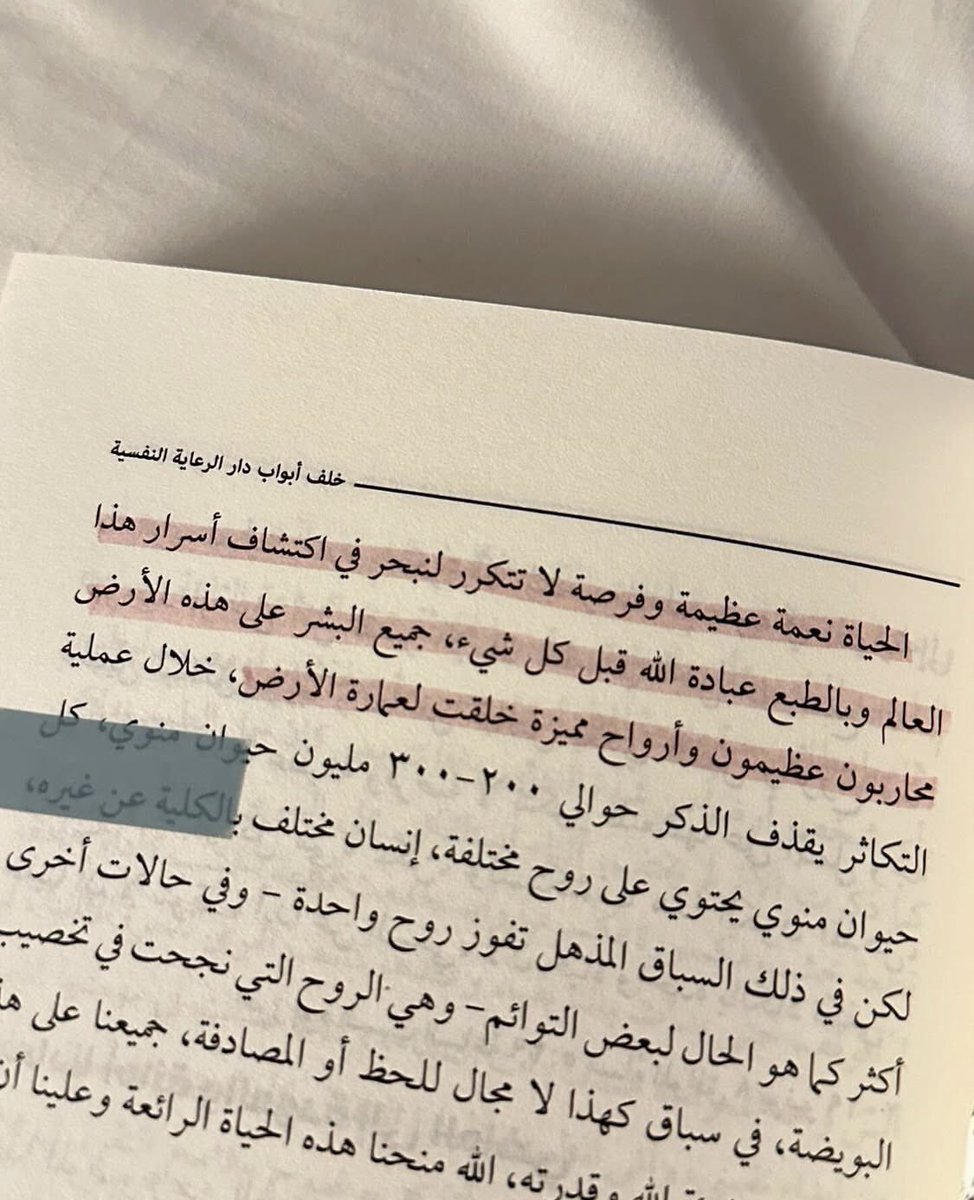 خلف أبواب دار الرعاية النفسية
الحياة نعمة عظيمة وفرصة لا تتكرر لنبحر في اكتشاف أسرار هذا
العالم وبالطبع عبادة الله قبل كل شيء، جميع البشر على هذه الأرض
محاربون عظيمون وأرواح مميزة خلقت لعمارة الأرض، خلال عملية
التكاثر يقذف الذكر حوالي ٢٠٠-٣٠٠ مليون حيوان منوي، كل
حيوان منوي يحتوي على روح مختلفة، إنسان مختلف بالكلية عن غيره،
لكن في ذلك السباق المذهل تفوز روح واحدة - وفي حالات أخرى
أكثر كما هو الحال لبعض التوائم- وهي الروح التي نجحت في تخصيب
البويضة، في سباق كهذا لا مجال للحظ أو المصادفة، جميعنا على
الله وقدرته، الله منحنا هذه الحياة الرائعة وعلينا أن